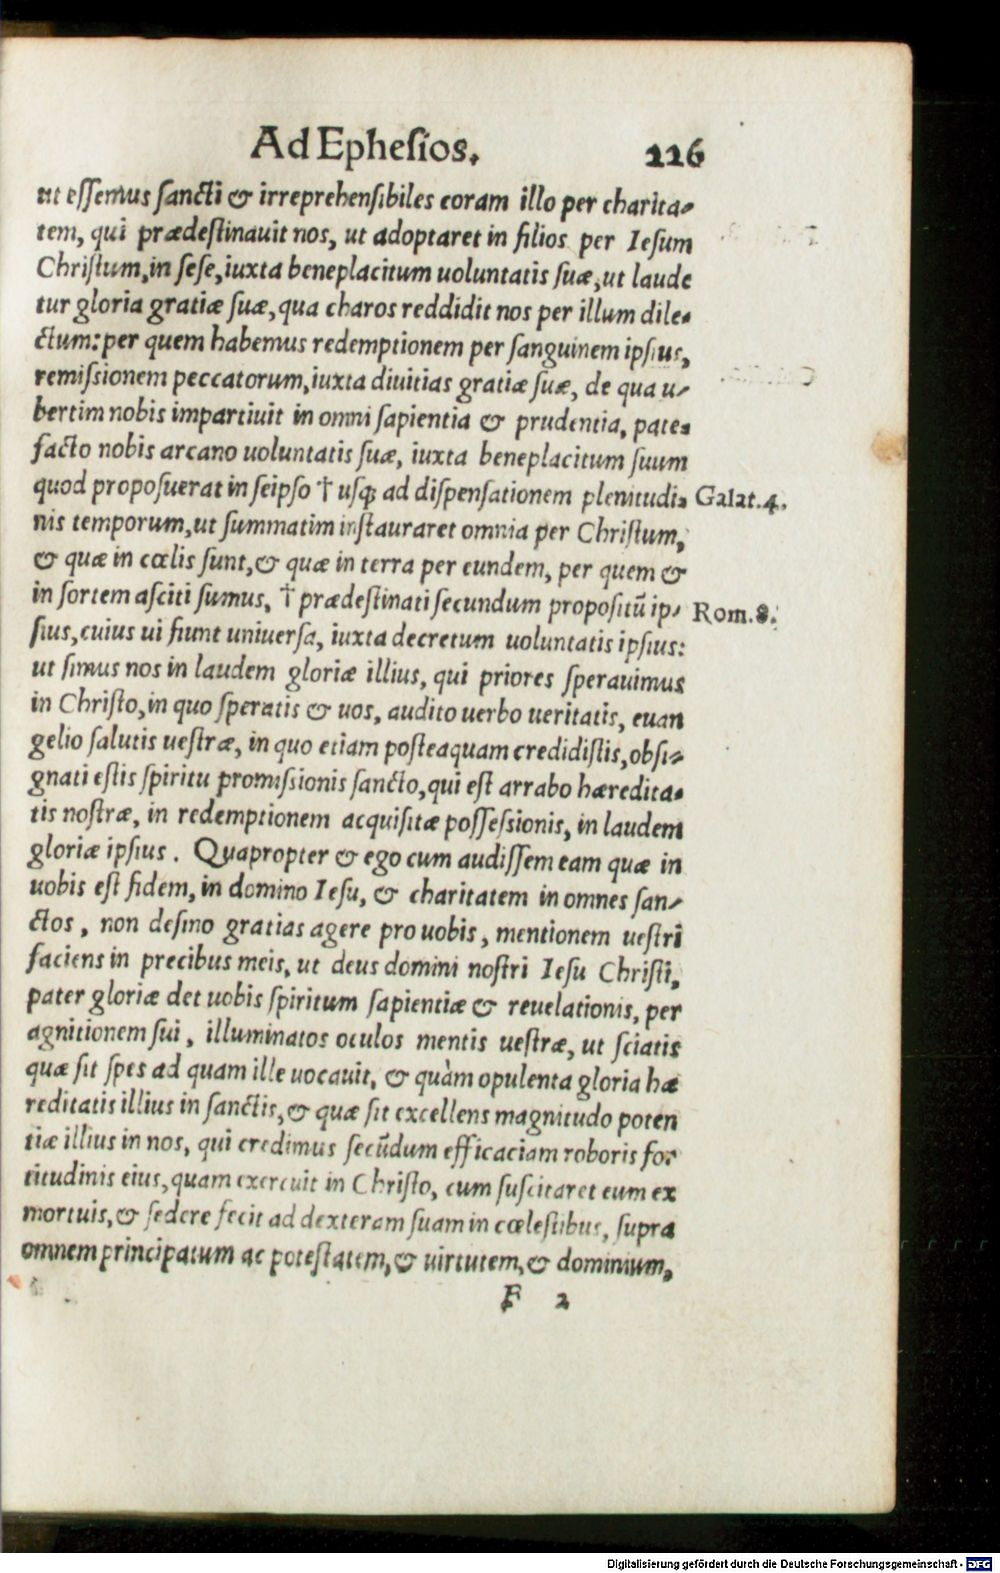 Ad Ephesios. 226
ut essemus sancti & irreprehensibiles coram illo per charita-
tem, qui prædestinavit nos, ut adoptaret in filios per Iesum
Christum, in sese, iuxta beneplacitum uoluntatis suæ, ut laude
tur gloria gratiæ suæ, qua charos reddidit nos per illum dile-
ctum: per quem habemus redemptionem per sanguinem ipsius,
remissionem peccatorum, iuxta diuitias gratiæ suæ, de qua u-
bertim nobis impartiuit in omni sapientia & prudentia, pate-
facto nobis arcano uoluntatis suæ, iuxta beneplacitum suum
quod proposuerat in seipso † usqꝫ ad dispensationem plenitudi- Galat.4.
nis temporum, ut summatim instauraret omnia per Christum,
& quæ in cœlis sunt, & quæ in terra per eundem, per quem &
in sortem asciti sumus, † prædestinati secundum propositū ip- Rom.8.
sius, cuius ui fiunt universa, iuxta decretum uoluntatis ipsius:
ut simus nos in laudem gloriæ illius, qui priores sperauimus
in Christo, in quo speratis & uos, audito uerbo ueritatis, euan
gelio salutis uestræ, in quo etiam posteaquam credidistis, obsi-
gnati estis spiritu promissionis sancto, qui est arrabo hæredita-
tis nostræ, in redemptionem acquisitæ possessionis, in laudem
gloriæ ipsius. Quapropter & ego cum audissem eam quæ in
uobis est fidem, in domino Iesu, & charitatem in omnes san-
ctos, non desino gratias agere pro uobis, mentionem uestri
faciens in precibus meis, ut deus domini nostri Iesu Christi,
pater gloriæ det uobis spiritum sapientiæ & reuelationis, per
agnitionem sui, illuminatos oculos mentis uestræ, ut sciatis
quæ sit spes ad quam ille uocauit, & quàm opulenta gloria hæ
reditatis illius in sanctis, & quæ sit excellens magnitudo poten
tiæ illius in nos, qui credimus secūdum efficaciam roboris for
titudinis eius, quam exercuit in Christo, cum suscitaret eum ex
mortuis, & sedere fecit ad dexteram suam in cœlestibus, supra
omnem principatum ac potestatem, & uirtutem, & dominium,
F 2
Digitalisierung gefördert durch die Deutsche Forschungsgemeinschaft - DFG